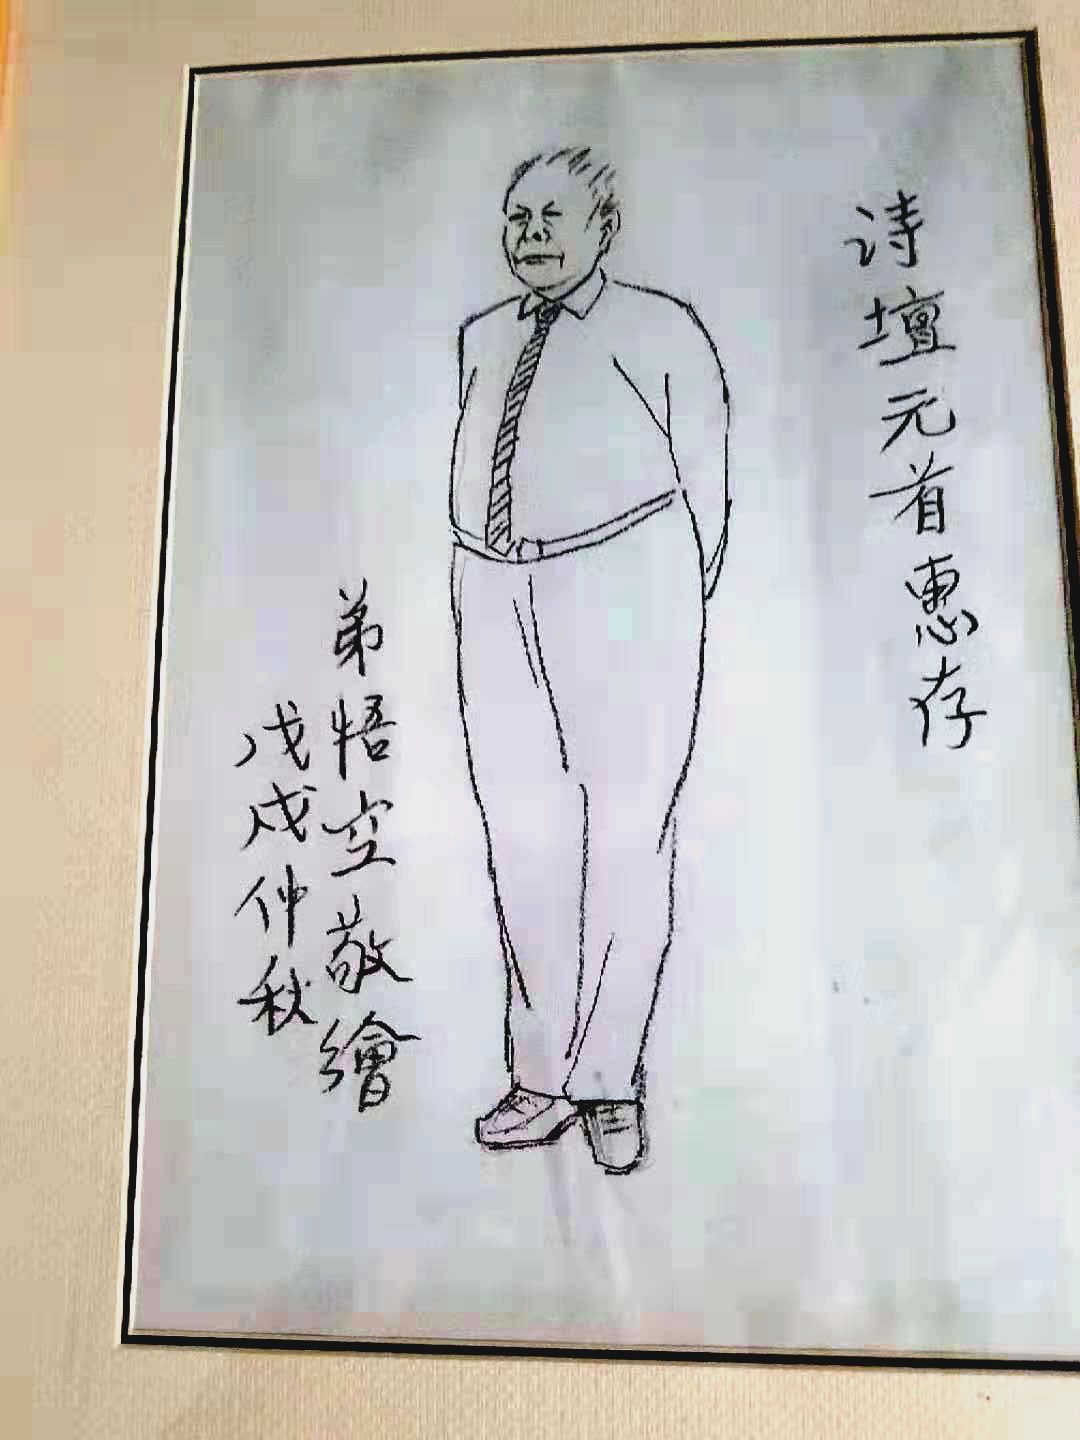 诗壇元首惠存
弟悟空敬繪
戊戌仲秋